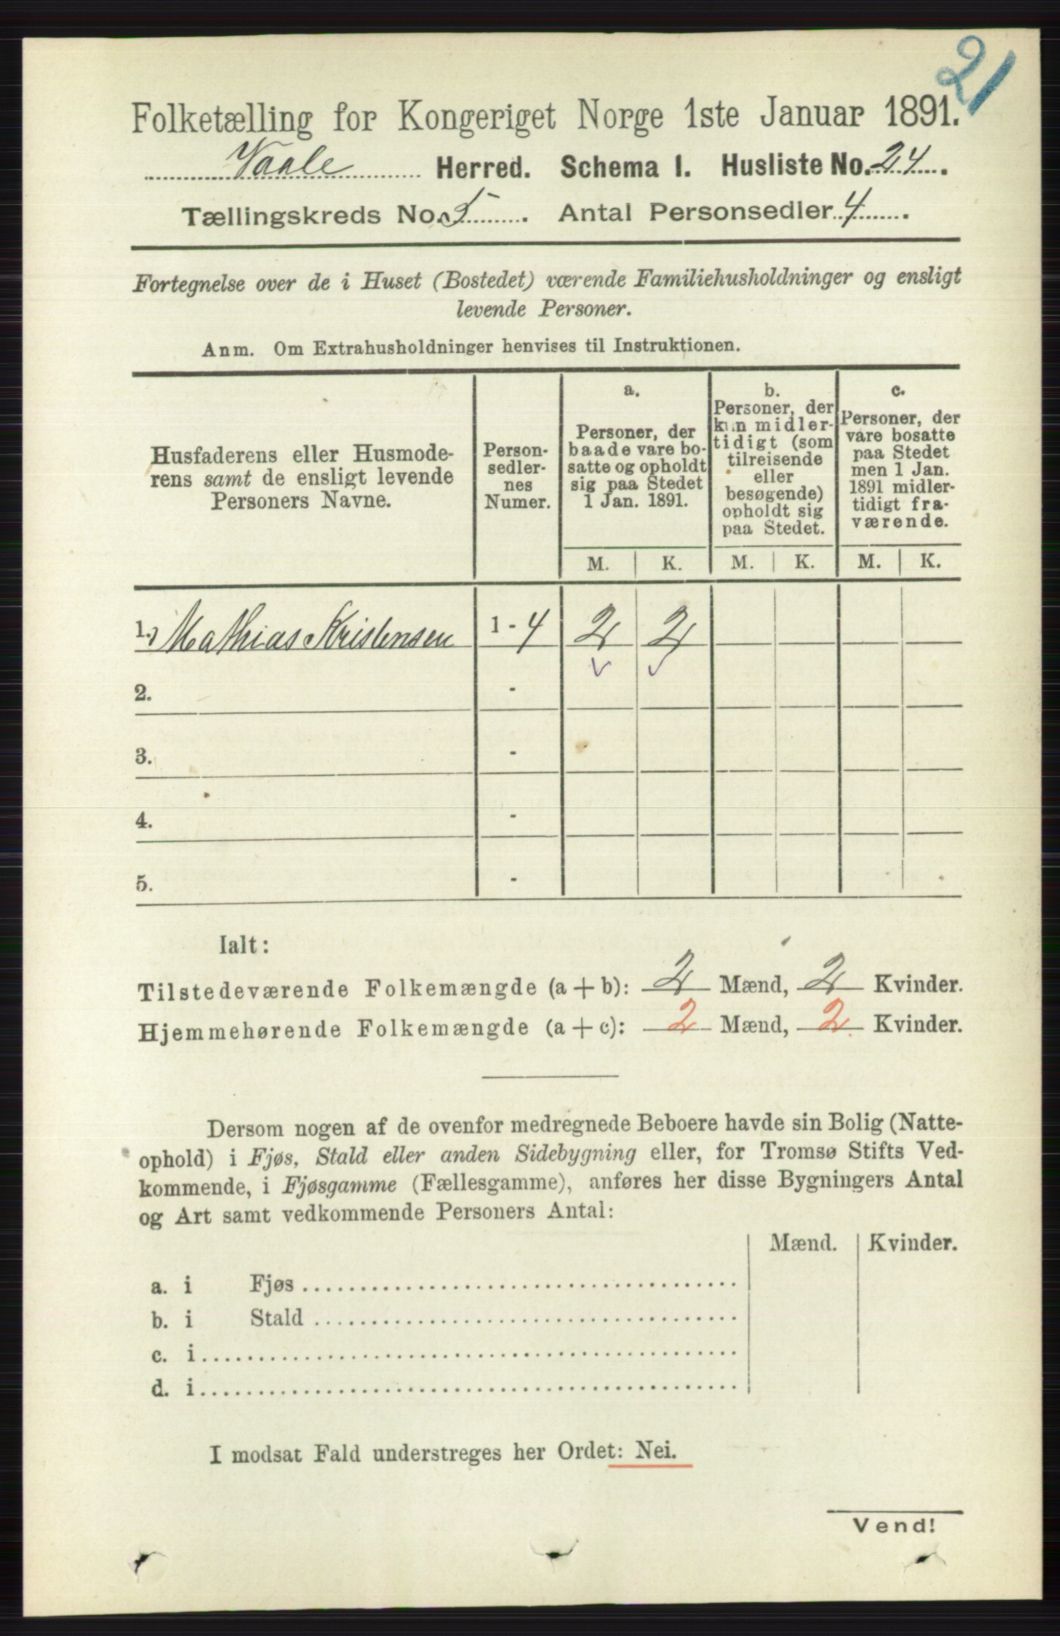 21
Folketælling for Kongeriget Norge 1ste Januar 1891.
Vaale Herred. Schema I. Husliste No. 24.
Tællingskreds No. 5. Antal Personsedler 4.
Fortegnelse over de i Huset (Bostedet) værende Familiehusholdninger og ensligt
levende Personer.
Anm. Om Extrahusholdninger henvises til Instruktionen.
Husfaderens eller Husmode-
rens samt de ensligt levende
Personers Navne.
Person-
sedler-
nes
Numer.
a.
Personer, der
baade vare bo-
satte og opholdt
sig paa Stedet
1 Jan. 1891.
b.
Personer, der
kun midler-
tidigt (som
tilreisende
eller
besøgende)
opholdt sig
paa Stedet.
c.
Personer, der
vare bosatte
paa Stedet
men 1 Jan.
1891 midler-
tidigt fra-
værende.
M. K. M. K. M. K.
1. Mathias Kristensen 1 - 4 2 2
2. -
3. -
4. -
5. -
Ialt:
Tilstedeværende Folkemængde (a + b): 2 Mænd, 2 Kvinder.
Hjemmehørende Folkemængde (a + c): 2 Mænd, 2 Kvinder.
Dersom nogen af de ovenfor medregnede Beboere havde sin Bolig (Natte-
ophold) i Fjøs, Stald eller anden Sidebygning eller, for Tromsø Stifts Ved-
kommende, i Fjøsgamme (Fællesgamme), anføres her disse Bygningers Antal
og Art samt vedkommende Personers Antal:
Mænd. Kvinder.
a. i Fjøs
b. i Stald
c. i
d. i
I modsat Fald understreges her Ordet: Nei.
Vend!